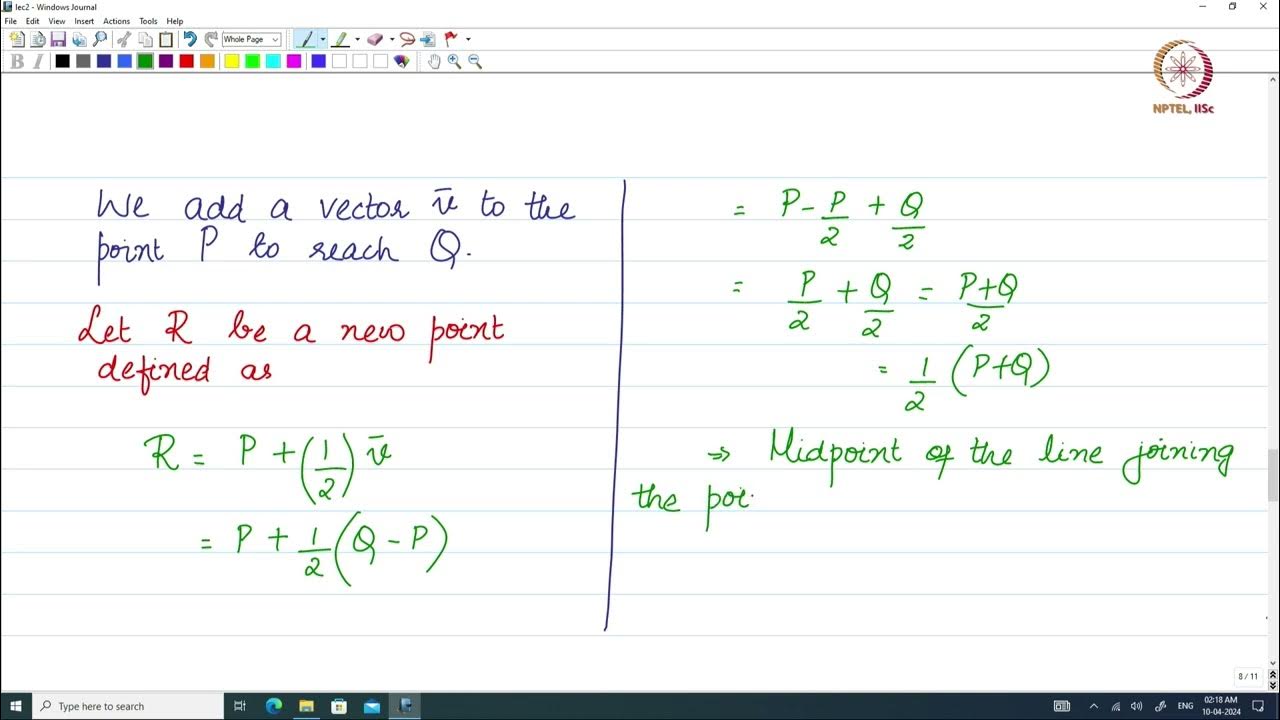 lec2 - Windows Journal
File Edit View Insert Actions Tools Help
Whole Page
B I
NPTEL, IISc
We add a vector v̄ to the
point P to reach Q.
Let R be a new point
defined as
R = P + (1/2) v̄
= P + 1/2 (Q - P)
= P - P/2 + Q/2
= P/2 + Q/2 = P+Q/2
= 1/2 (P+Q)
⇒ Midpoint of the line joining
the poi
8 / 11
Type here to search
ENG
02:18 AM
10-04-2024